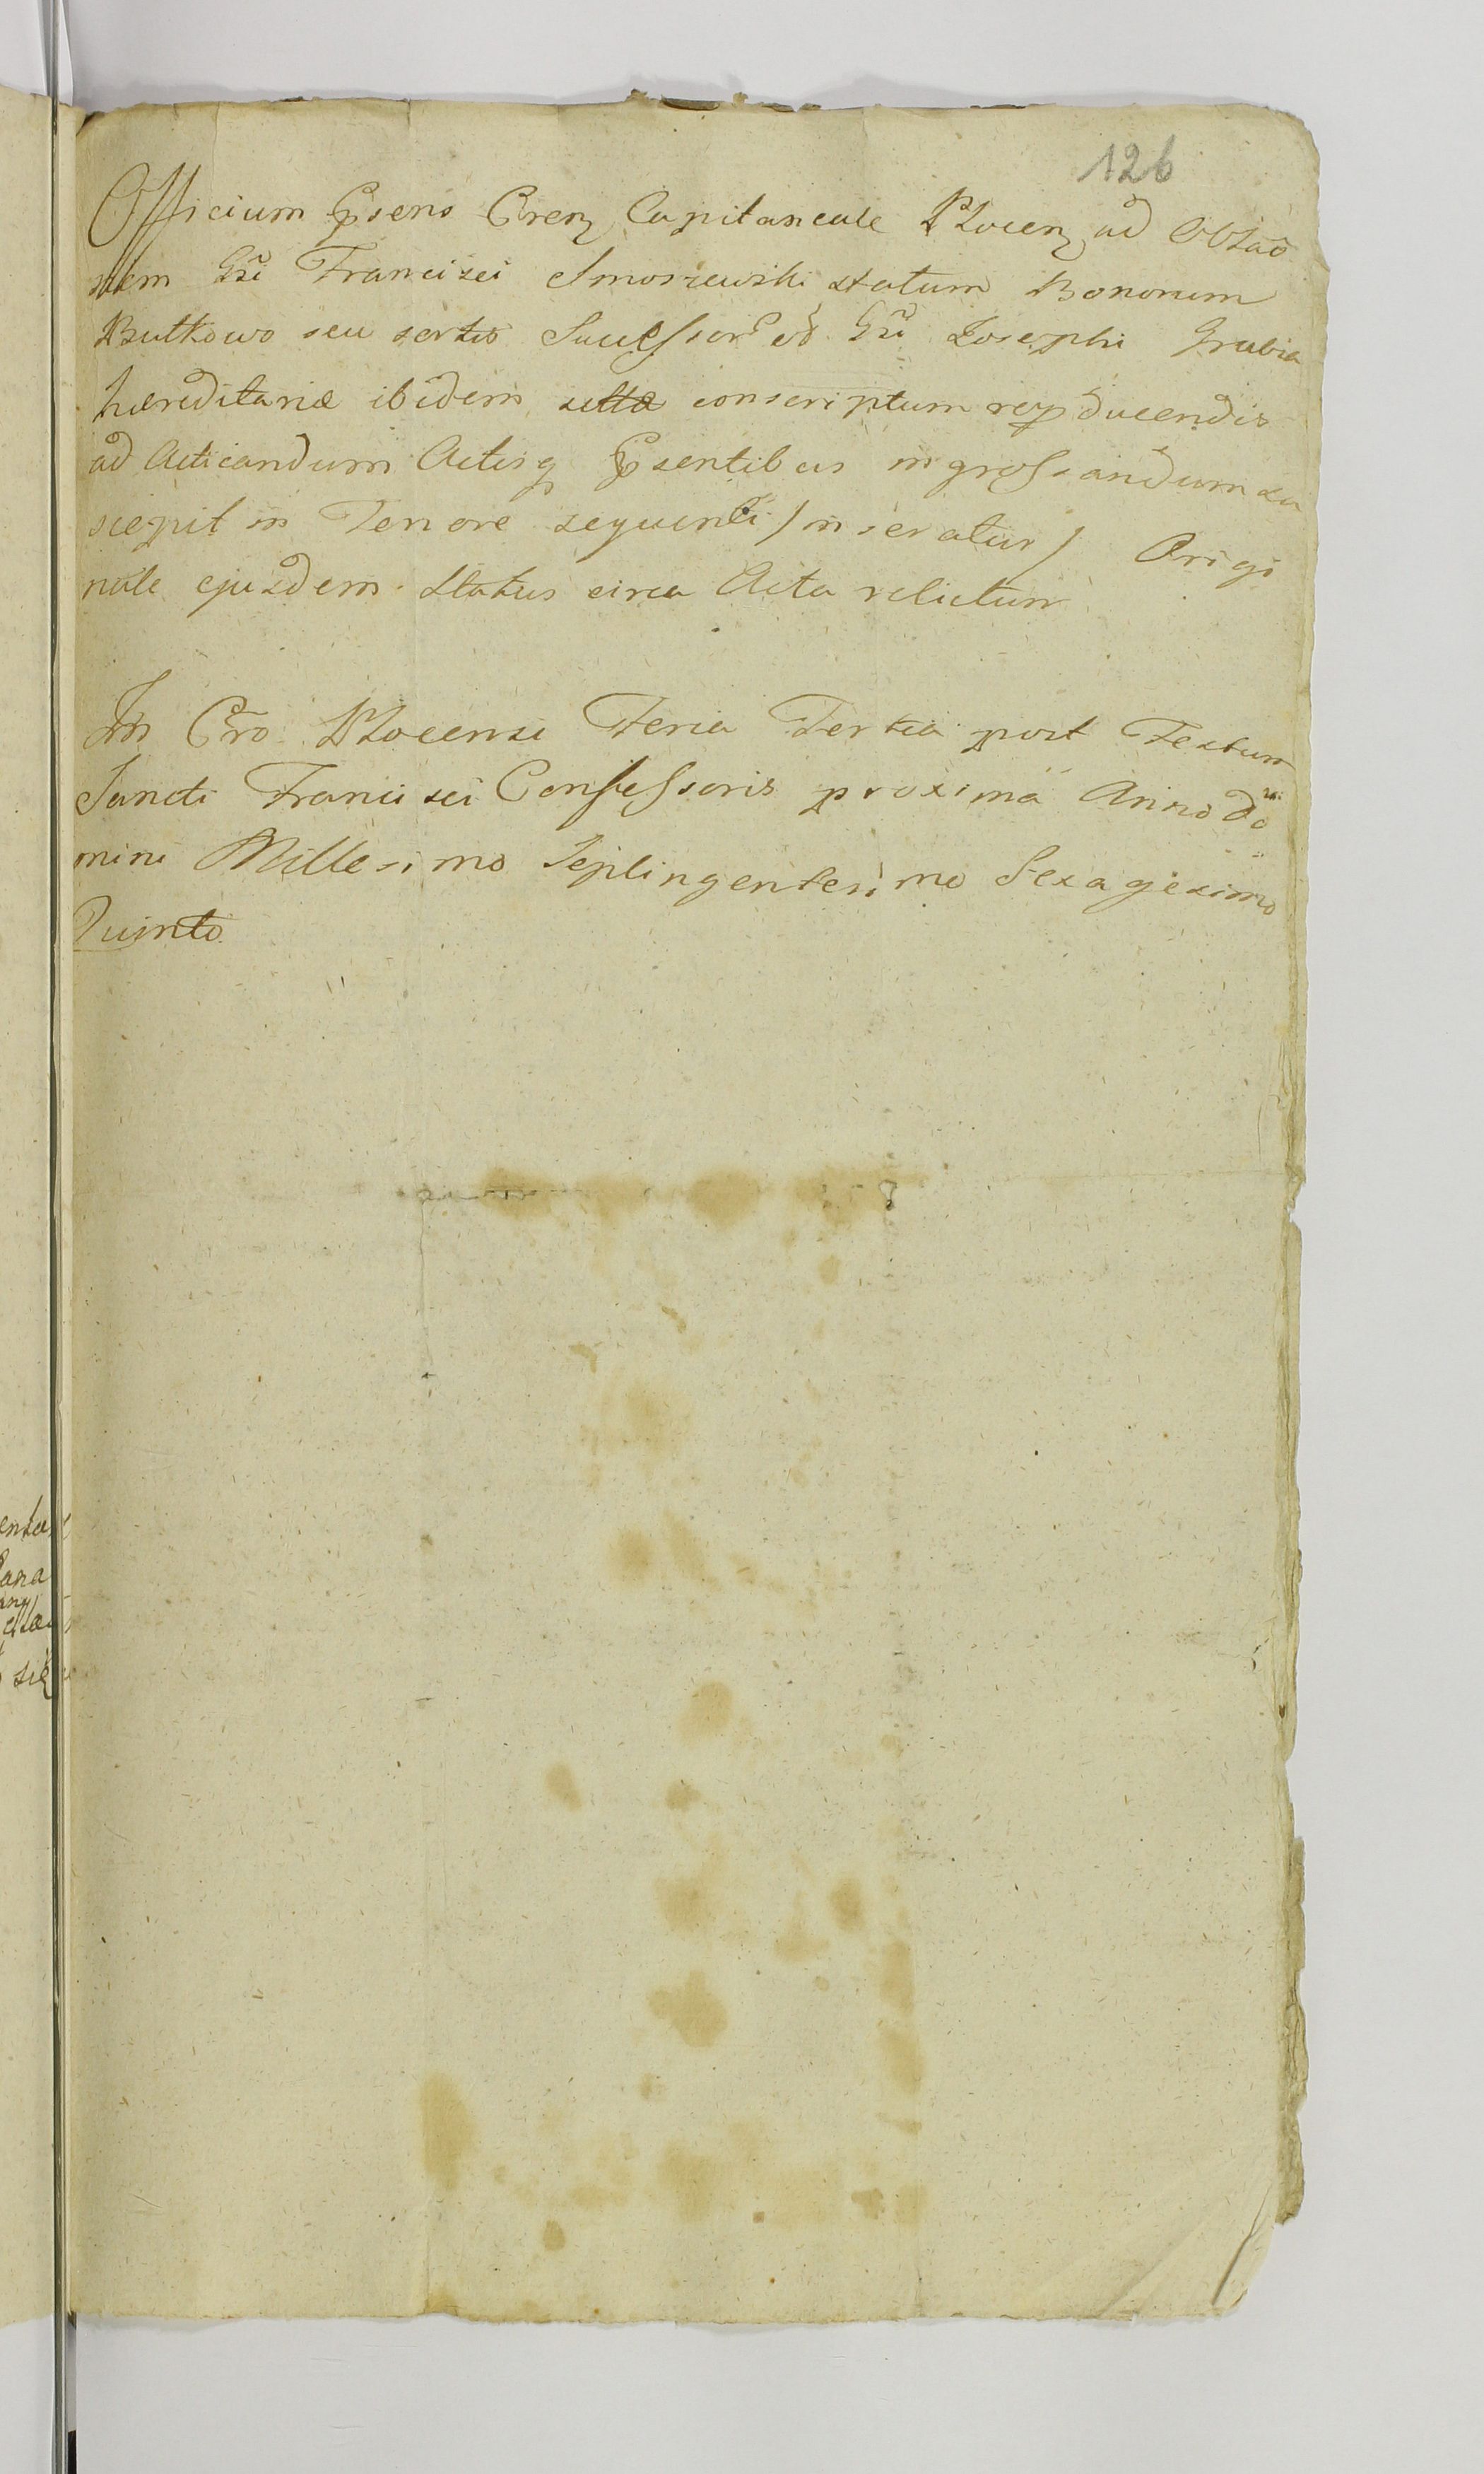 126
Officium Psens Cren Capitaneale Plocen ad Oblaõ
nem Gsi Francisci Smoszewski statum Bonorum
Butkowo seu sortis Successor eod Gsi Josephi Grabia
hæreditariæ ibidem sittæ conscriptum reproducendis
ad Acticandum Actisq Psentibus ingrossandum su
scepit in Tenore sequenti / inseratur / Origi
nale ejusdem Status circa Acta relictum
In Cro Plocensi Feria Tertia post Festum
Sancti Francisci Confessoris proximâ Anno Do
mini Millesimo Septingentesimo Sexagesimo
Quinto
enta
ana
się